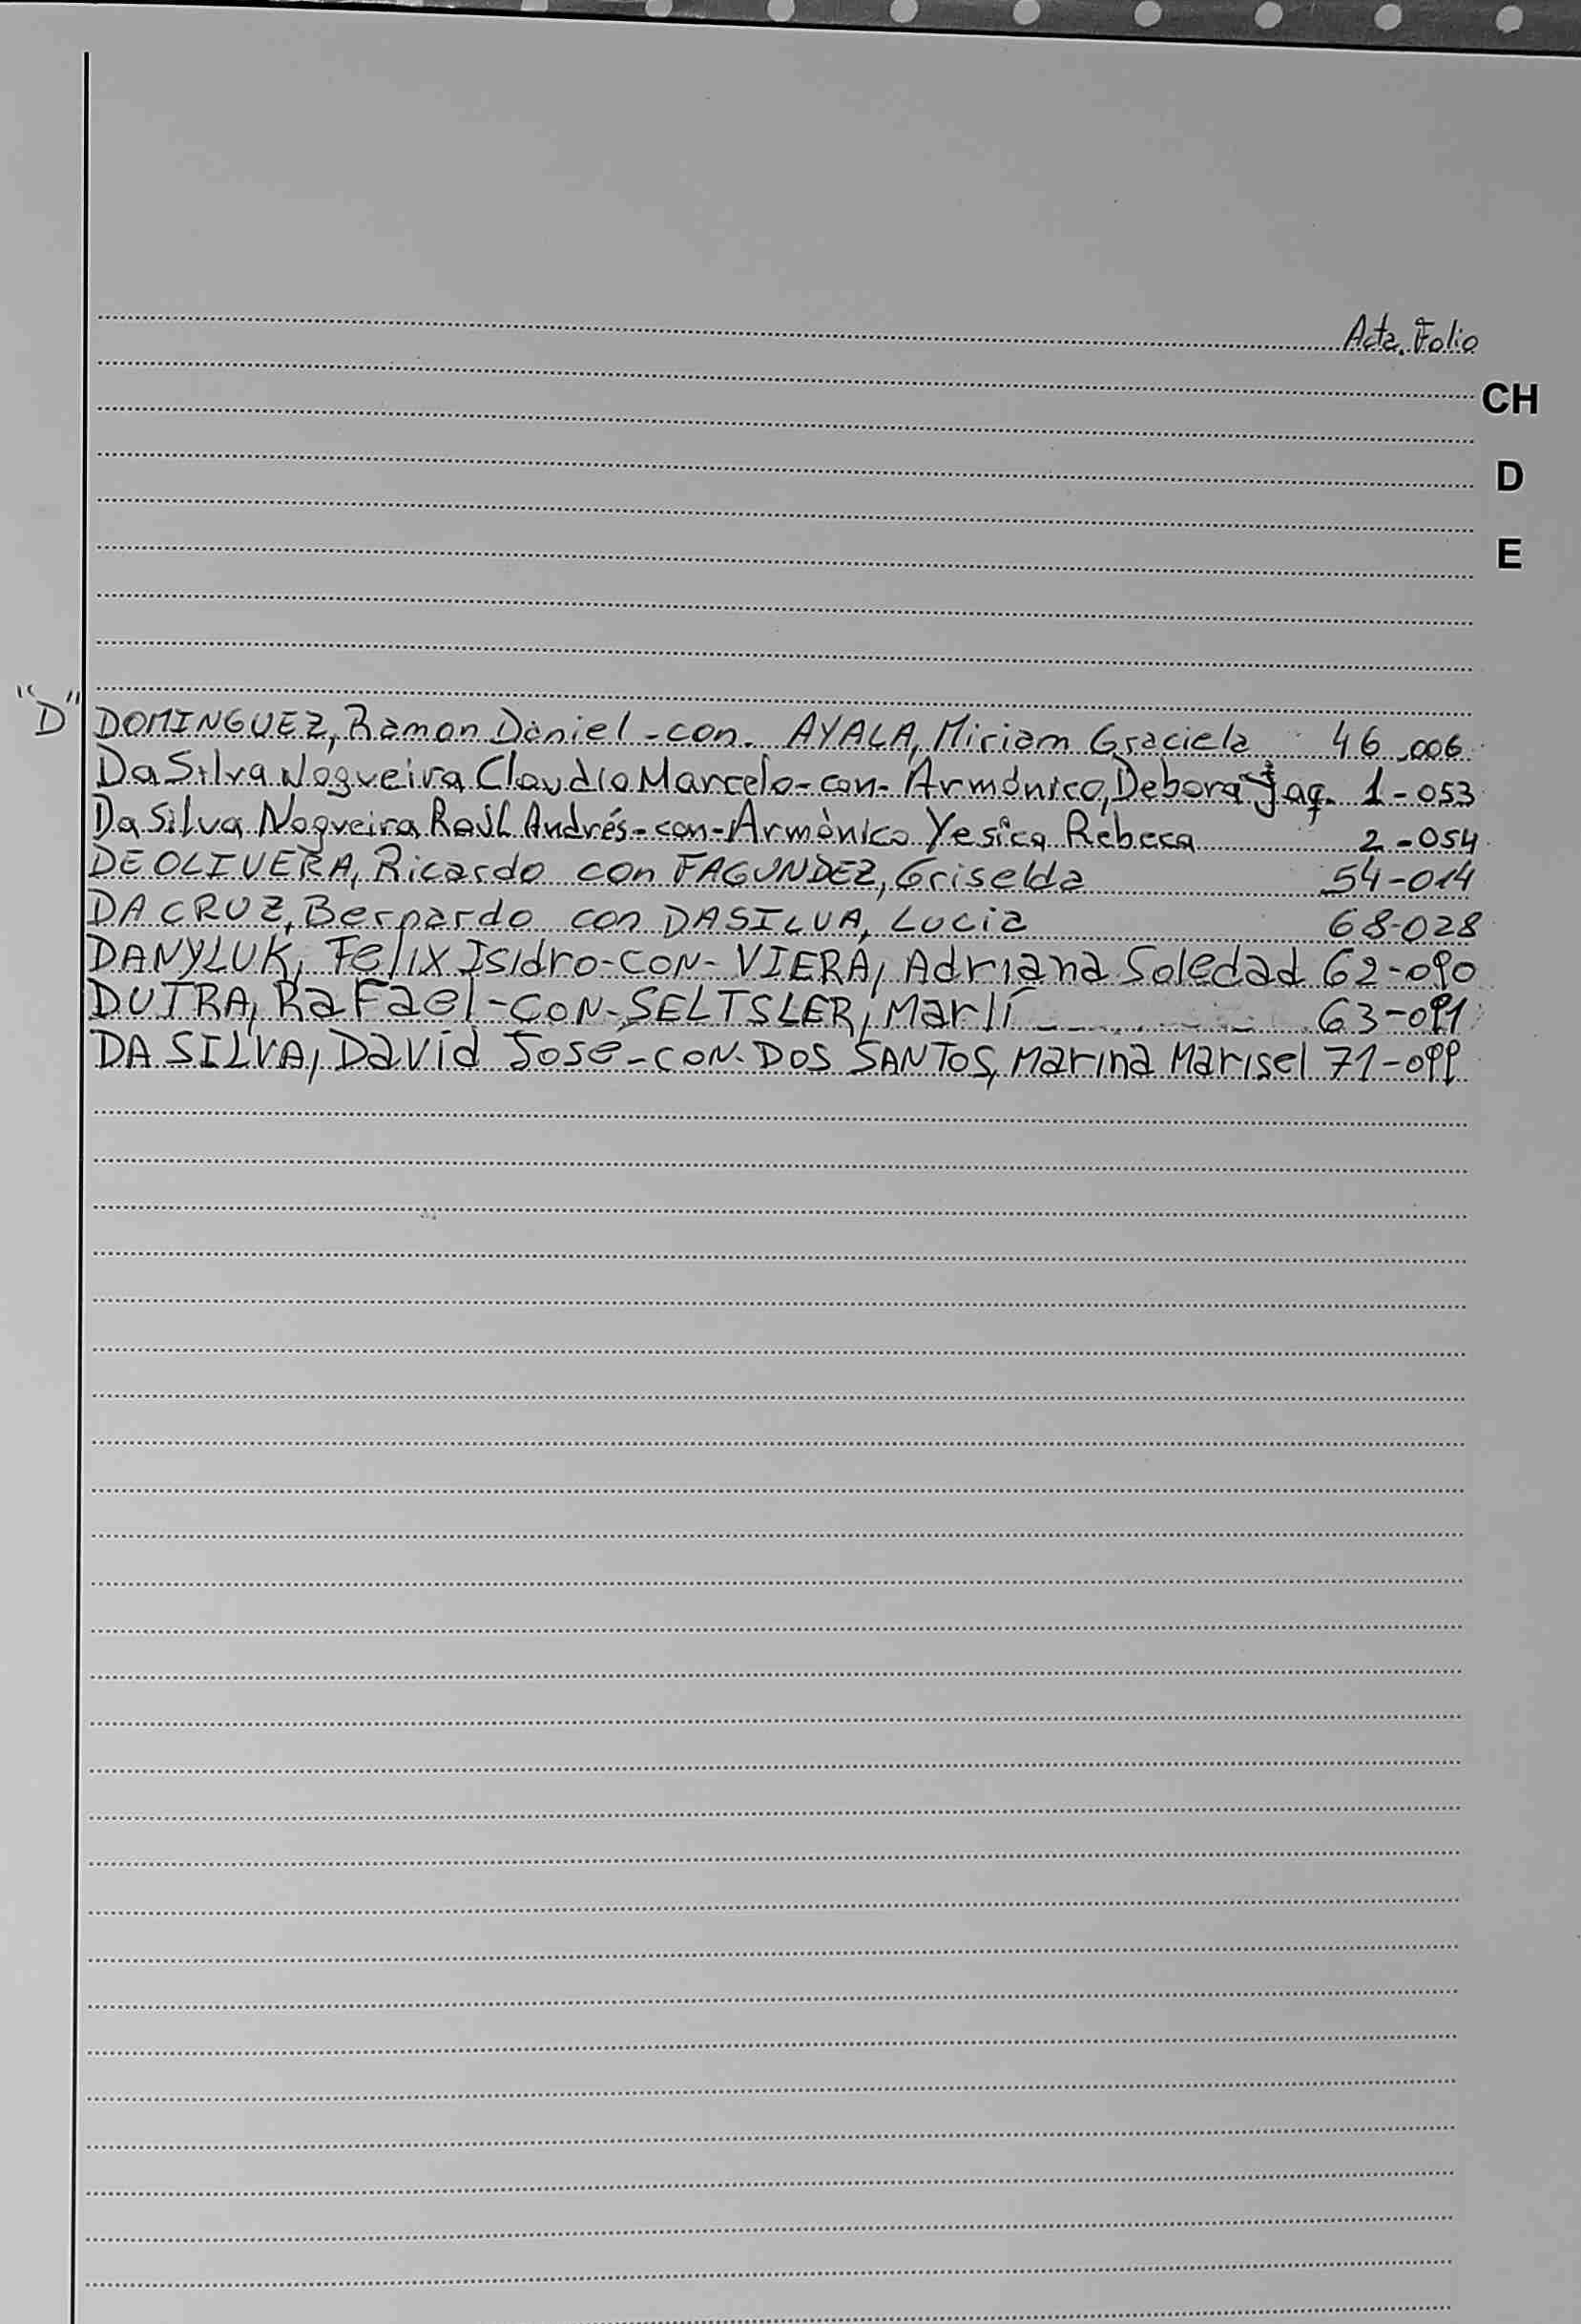 Acta. Folio
CH
D
E
"D" DOMINGUEZ, Ramon Daniel - con. AYALA, Miriam Graciela 46 006
Da Silva Nogueira Claudio Marcelo - con - Armónico, Debora Jaq. 1 - 053
Da Silva Nogueira Raúl Andrés - con - Armónico Yesica Rebeca 2 - 054
DE OLIVERA, Ricardo con FAGUNDEZ, Griselda 54 - 014
DA CRUZ, Bernardo con DASILVA, Lucia 68-028
DANYLUK, Felix Isidro - CON - VIERA, Adriana Soledad 62-090
DUTRA, Rafael - CON - SELTSLER, Marlí 63-091
DA SILVA, David José - CON - DOS SANTOS, Marina Marisel 71-099